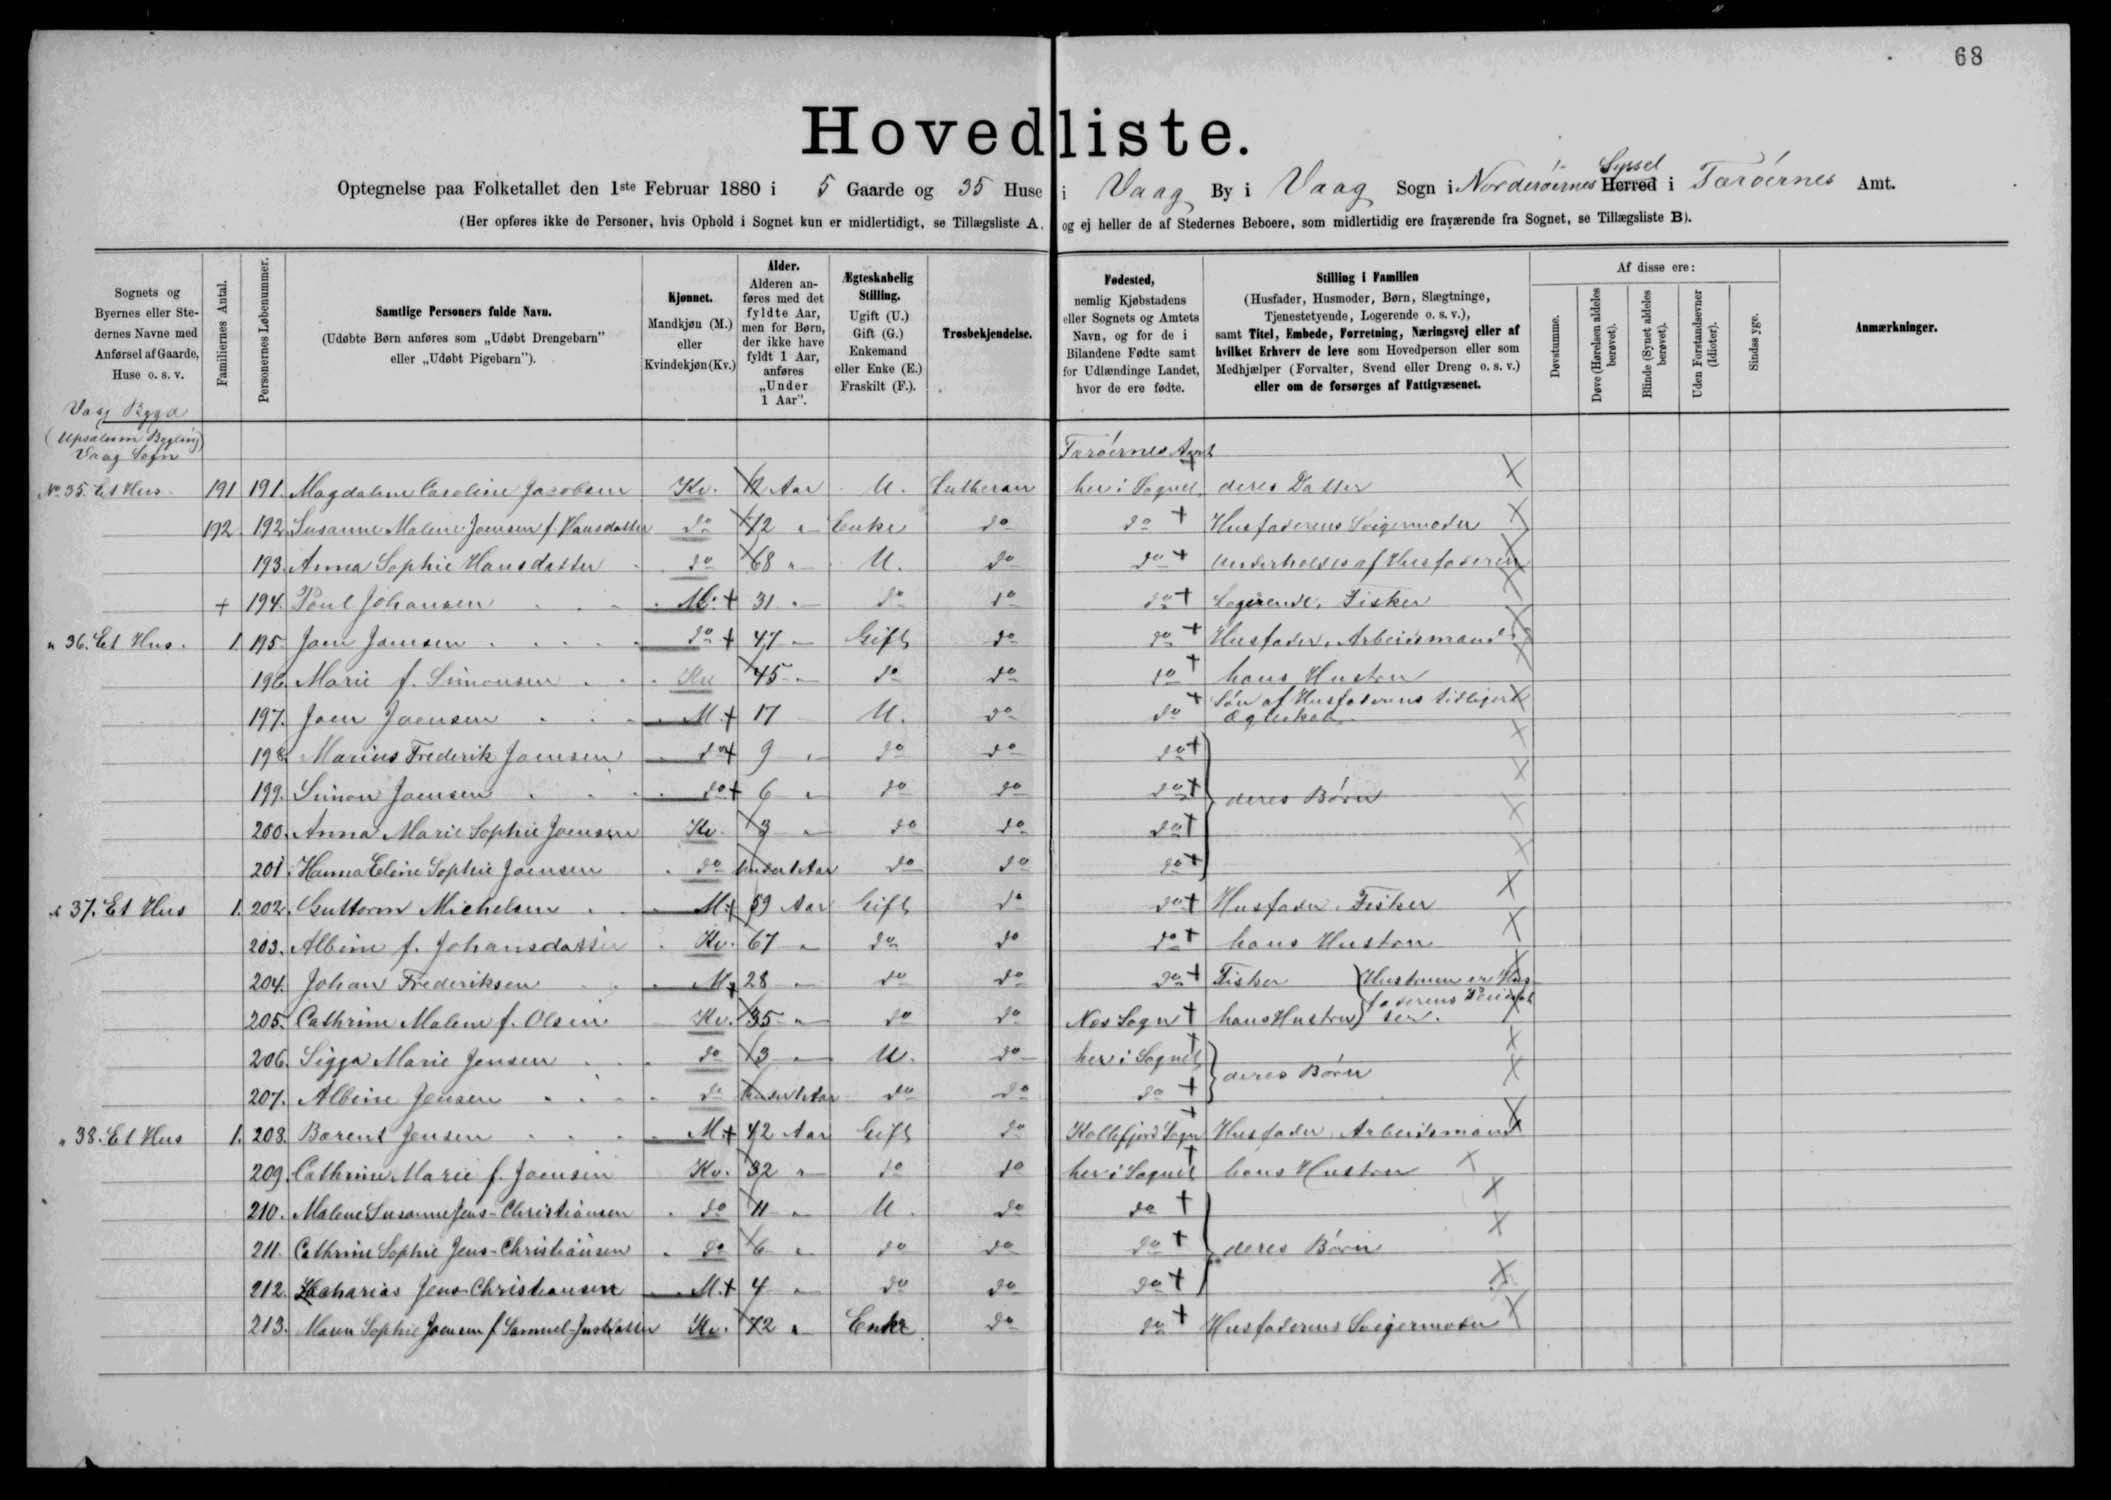 68
Hovedliste.
Optegnelse paa Folketallet den 1ste Februar 1880 i 5 Gaarde og 35 Huse i Vaag By i Vaag Sogn i Norderöernes Herred Syssel i Færöernes Amt.
(Her opføres ikke de Personer, hvis Ophold i Sognet kun er midlertidigt, se Tillægsliste A. og ej heller de af Stedernes Beboere, som midlertidig ere fraværende fra Sognet, se Tillægsliste B).
Sognets og Byernes eller Stedernes Navne med Anførsel af Gaarde, Huse o. s. v.
Familiernes Antal.
Personernes Løbenummer.
Samtlige Personers fulde Navn.
(Udøbte Børn anføres som „Udøbt Drengebarn" eller „Udøbt Pigebarn").
Kjønnet.
Mandkjøn (M.) eller Kvindekjøn (Kv.)
Alder.
Alderen anføres med det fyldte Aar, men for Børn, der ikke have fyldt 1 Aar, anføres „Under 1 Aar".
Ægteskabelig Stilling.
Ugift (U.) Gift (G.) Enkemand eller Enke (E.) Fraskilt (F.).
Trosbekjendelse.
Fødested,
nemlig Kjøbstadens eller Sognets og Amtets Navn, og for de i Bilandene Fødte samt for Udlændinge Landet, hvor de ere fødte.
Stilling i Familien
(Husfader, Husmoder, Børn, Slægtninge, Tjenestetyende, Logerende o. s. v.), samt Titel, Embede, Forretning, Næringsvej eller af hvilket Erhverv de leve som Hovedperson eller som Medhjælper (Forvalter, Svend eller Dreng o. s. v.) eller om de forsørges af Fattigvæsenet.
Af disse ere:
Døvstumme.
Døve (Hørelsen aldeles berøvet).
Blinde (Synet aldeles berøvet).
Uden Forstandsevner (Idioter).
Sindssyge.
Anmærkninger.
Vaag Bygd
Vaag Sogn
Færöernes Amt
No. 35. Et Hus. 191 191. Magdalene Caroline Jacobsen Kv. Aar U. Lutheran her i Sognet. deres Datter
192. 192. Susanne Malene Joensen f. Hansdatter do 72 " Enke do do Husfaderens Svigermoder
193. Anna Sophie Hansdatter do 68 " U. do do Underholdes af Husfaderen
+ 194. Poul Johansen M. 31 " do do do Logerende, Fisker
" 36. Et Hus. 1. 195. Joen Joensen do 47 " Gift do do Husfader, Arbeidsmand
196. Marie f. Simonsen Kv 45 " do do do hans Hustru
197. Joen Joensen M. 17 U. do do Sön af Husfaderens tidligere Ægteskab
198. Marius Frederik Joensen do 9 " do do do
199. Simon Joensen do 6 " do do do deres Börn
200. Anna Marie Sophie Joensen Kv. 3 " do do do
201. Hanna Eline Sophie Joensen do under 1 Aar do do do
" 37. Et Hus 1. 202. Guttorm Michelsen M. 59 Aar Gift do do Husfader, Fisker
203. Albine f. Johansdatter Kv. 67 " do do do hans Hustru
204. Johan Frederiksen M. 28 " do do do Fisker Hustruen er Hus-
205. Cathrine Malene f. Olsen Kv. 35 " do do Nes Sogn hans Hustru faderens
206. Sigga Marie Jensen do 3 " U. do her i Sognet
207. Albine Jensen do under 1 Aar do do do deres Börn
" 38. Et Hus 1. 208. Barent Jensen M. 42 Aar Gift do Kollefjord Sogn Husfader, Arbeidsmand
209. Cathrine Marie f. Joensen Kv. 32 " do do her i Sognet hans Hustru
210. Malene Susanne Jens-Christiansen do 11 " U. do do
211. Cathrine Sophie Jens-Christiansen do 6 " do do do deres Börn
212. Zacharias Jens-Christiansen M. 4 " do do do
213. Maren Sophie Joensen f. Samuel-Justdatter Kv. 72 " Enke do do Husfaderens Svigermoder